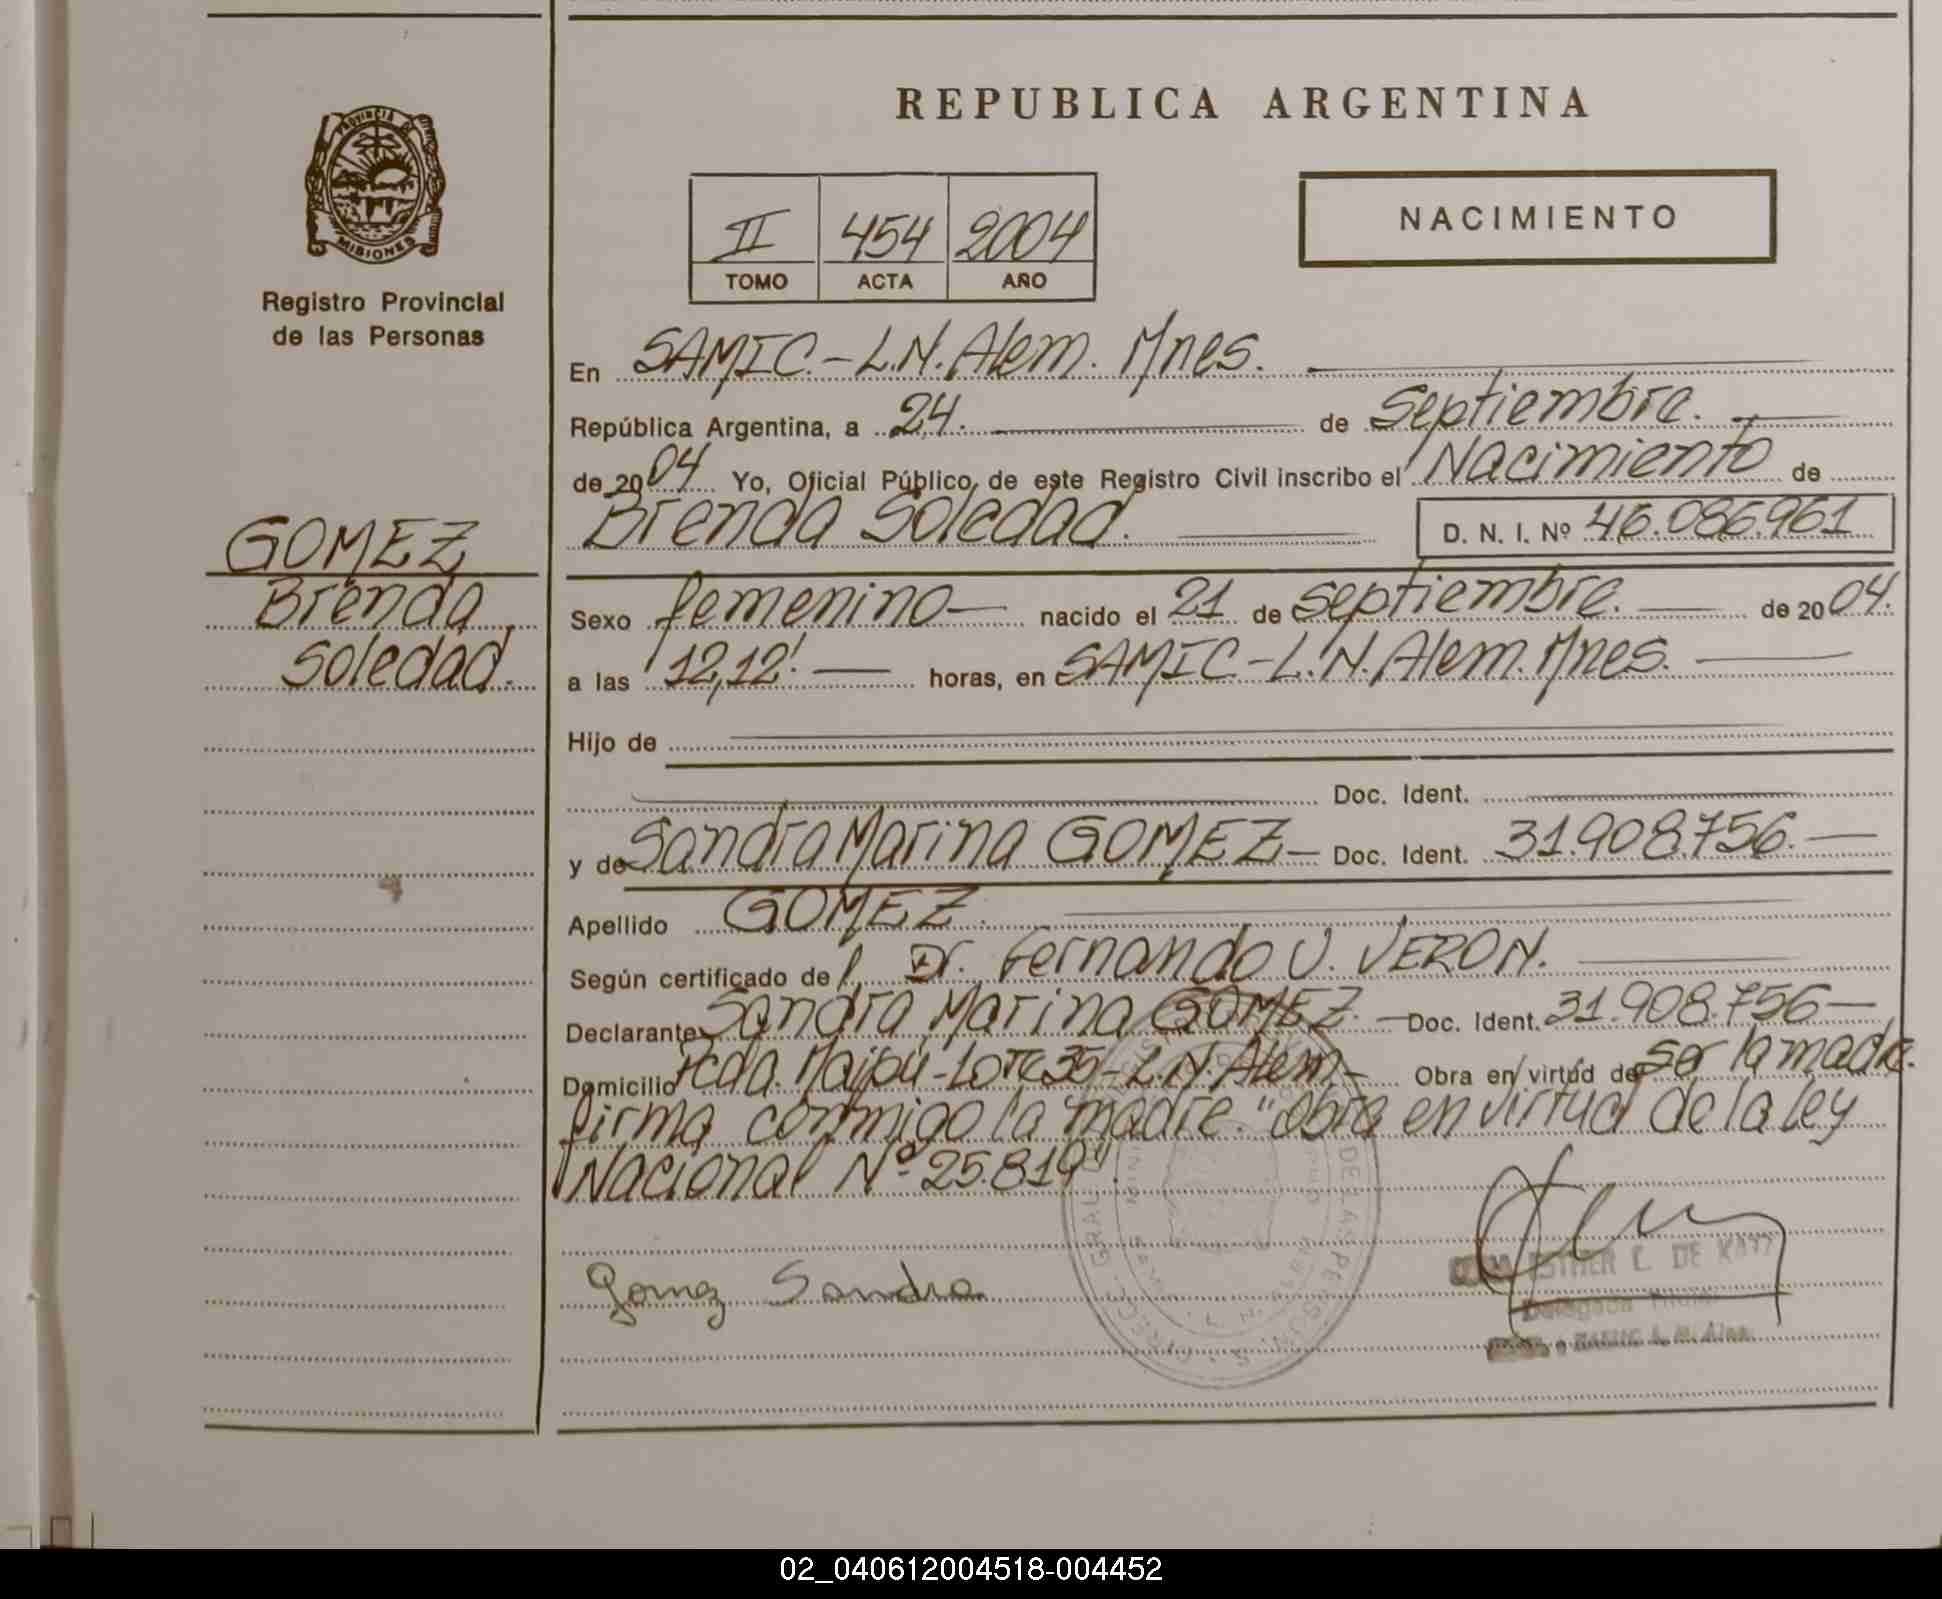 PROVINCIA DE
MISIONES
Registro Provincial
de las Personas
GOMEZ
Brenda
Soledad.
REPUBLICA ARGENTINA
II 454 2004
TOMO ACTA AÑO
NACIMIENTO
En SAMIC.-L.N.Alem. Mnes.
República Argentina, a 24. de Septiembre.
de 2004 Yo, Oficial Público, de este Registro Civil inscribo el Nacimiento de
Brenda Soledad. D. N. I. Nº 46.086.961
Sexo femenino nacido el 21 de Septiembre. de 2004.
a las 12,12' horas, en SAMIC-L.N.Alem.Mnes.
Hijo de
Doc. Ident.
y de Sandra Marina GOMEZ- Doc. Ident. 31.908.756.-
Apellido GOMEZ.
Según certificado de Dr. Fernando U. VERON.
Declarante Sandra Marina GOMEZ. - Doc. Ident. 31.908.756-
Domicilio Pcda. Maipú-Lote 35-L.N.Alem- Obra en virtud de ser la madre.
firma conmigo la madre. "obra en virtud de la ley
Nacional Nº 25.819".
Gomez Sandra
ESTHER L. DE KATZ
Delegada Titular
L. N. Alem
DE LAS PERSONAS
02_040612004518-004452